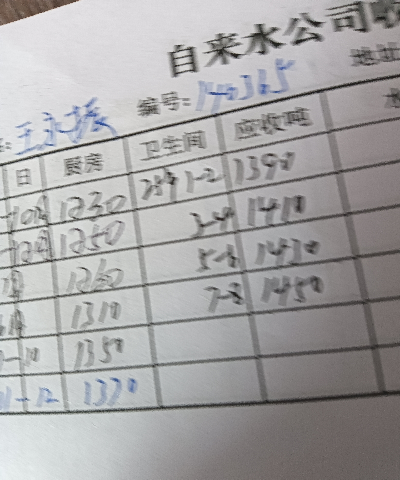 自来水公司收
王永振 编号: 140365 地址
日 厨房 卫生间 应收吨 水
10月 1230 1-2 1390
12月 1250 3-4 1410
1260 5-6 1430
1310 7-8 1450
-10 1350
11-12 1370